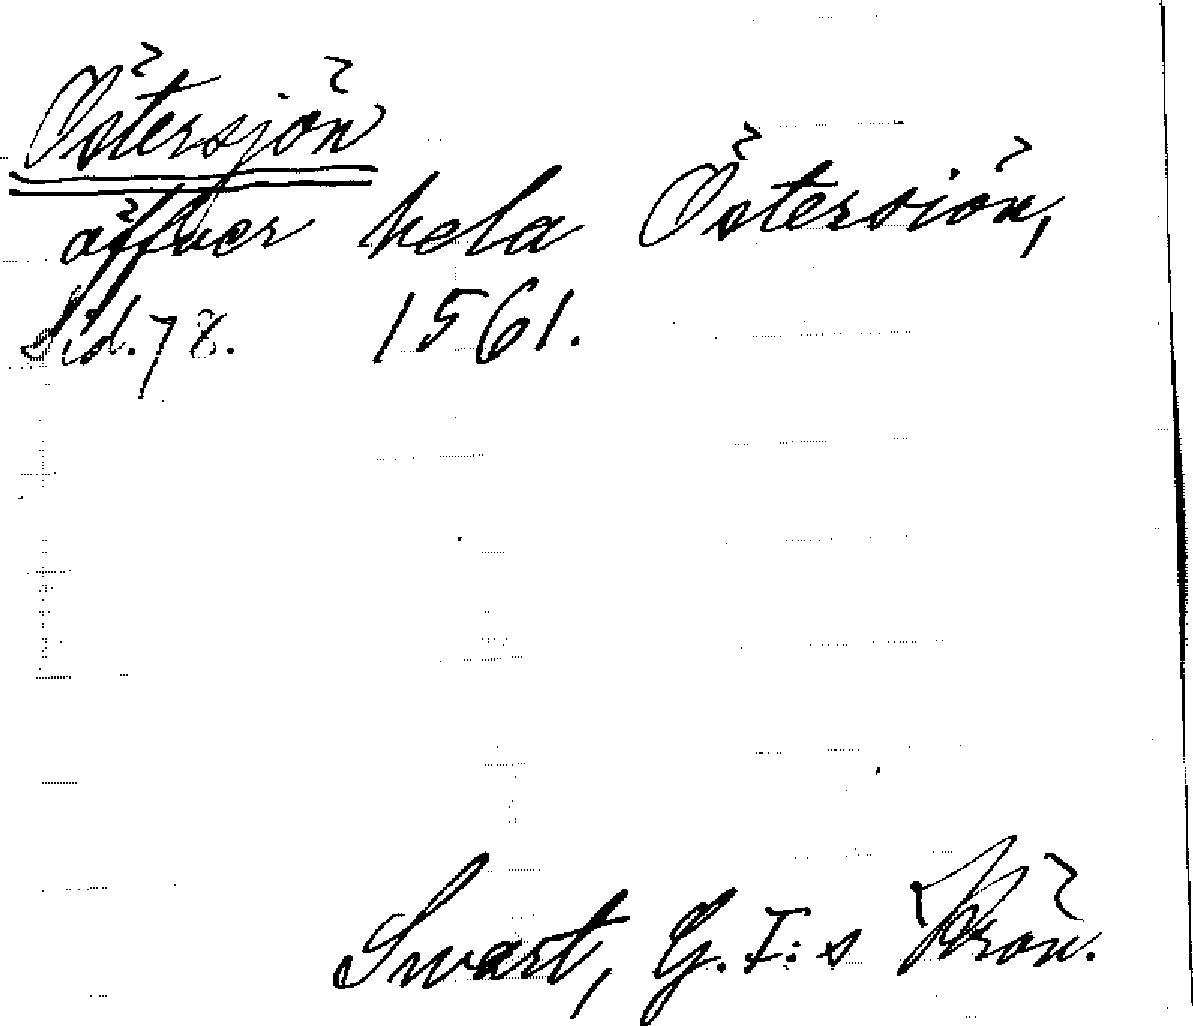 Östersjön
öffuer hela Östersiön,
sid. 78. 1561.
Swart, G. I:s Krön.